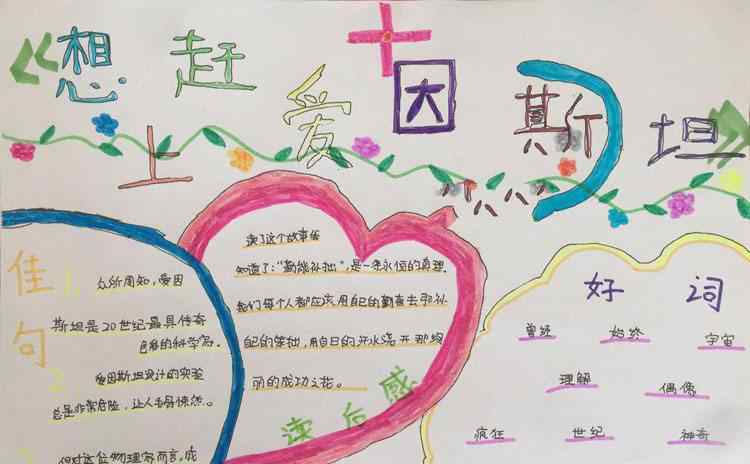 《想赶上爱因斯坦》
佳句
1. 众所周知,爱因
斯坦是20世纪最具传奇
色彩的科学家。
2 爱因斯坦设计的实验
总是非常危险,让人毛骨悚然。
但对这位物理家而言,成
读了这个故事我
知道了:"勤能补拙",是一条永恒的真理,
我们每个人都应该用自己的勤奋去弥补
自己的笨拙,用自日的 水浇开那绚
丽的成功之花。
读后感
好词
曾经 始终 宇宙
理解 偶像
疯狂 世纪 神奇